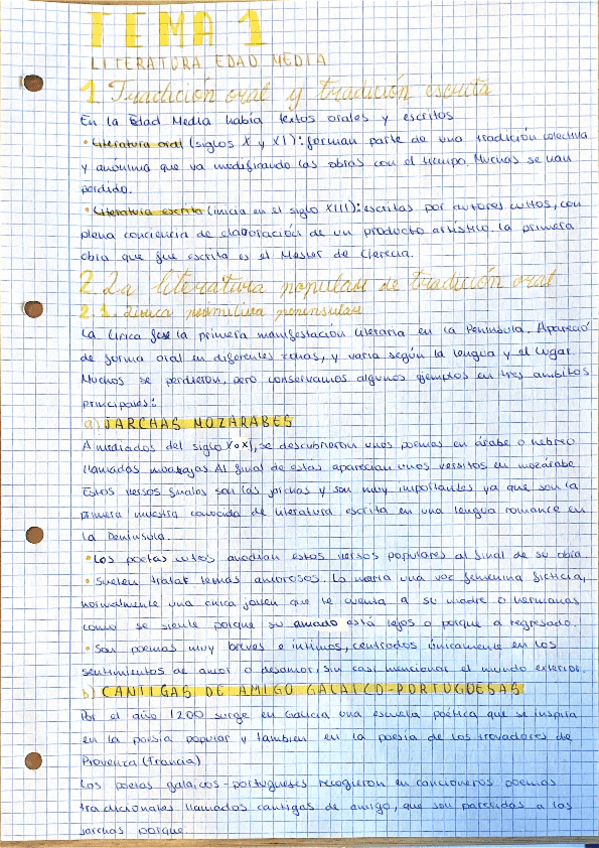 TEMA 1
LITERATURA EDAD MEDIA
1. Tradición oral y tradición escrita
En la Edad Media había textos orales y escritos
• Literatura oral (siglos X y XI): forman parte de una tradición colectiva
y anónima que va modificando las obras con el tiempo. Muchas se van
perdido.
• Literatura escrita (inicia en el siglo XIII): escritas por autores cultos, con
plena conciencia de elaboración de un producto artístico. La primera
obra que fue escrita es el Mester de Clerecía.
2. La literatura popular de tradición oral
2.1. Lírica primitiva peninsular
La lírica fue la primera manifestación literaria en la Península. Apareció
de forma oral en diferentes zonas, y varía según la lengua y el lugar.
Muchos se perdieron, pero conservamos algunos ejemplos en tres ámbitos
principales:
a) JARCHAS MOZÁRABES
A mediados del siglo X o XI, se descubrieron unos poemas en árabe o hebreo
llamados moaxajas. Al final de estas aparecían unos versitos en mozárabe.
Estos versos finales son las jarchas y son muy importantes ya que son la
primera muestra conocida de literatura escrita en una lengua romance en
la Península.
• Los poetas cultos añadían estos versos populares al final de su obra.
• Suelen tratar temas amorosos. Lo narra una voz femenina ficticia,
normalmente una chica joven que le cuenta a su madre o hermanas
como se siente porque su amado está lejos o porque a regresado.
• Son poemas muy breves e íntimos, centrados únicamente en los
sentimientos de amor o desamor, sin casi mencionar el mundo exterior.
b) CANTIGAS DE AMIGO GALAICO-PORTUGUESAS
Por el año 1200 surge en Galicia una escuela poética que se inspira
en la poesía popular y también en la poesía de los trovadores de
Provenza (Francia)
Los poetas galaicos-portugueses recogieron en cancioneros poemas
tradicionales llamados cantigas de amigo, que son parecidas a las
jarchas porque: